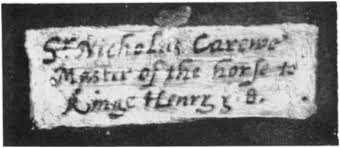 Sr. Nicholas Carewe
Master of the horse to
Kinge Henry y 8.